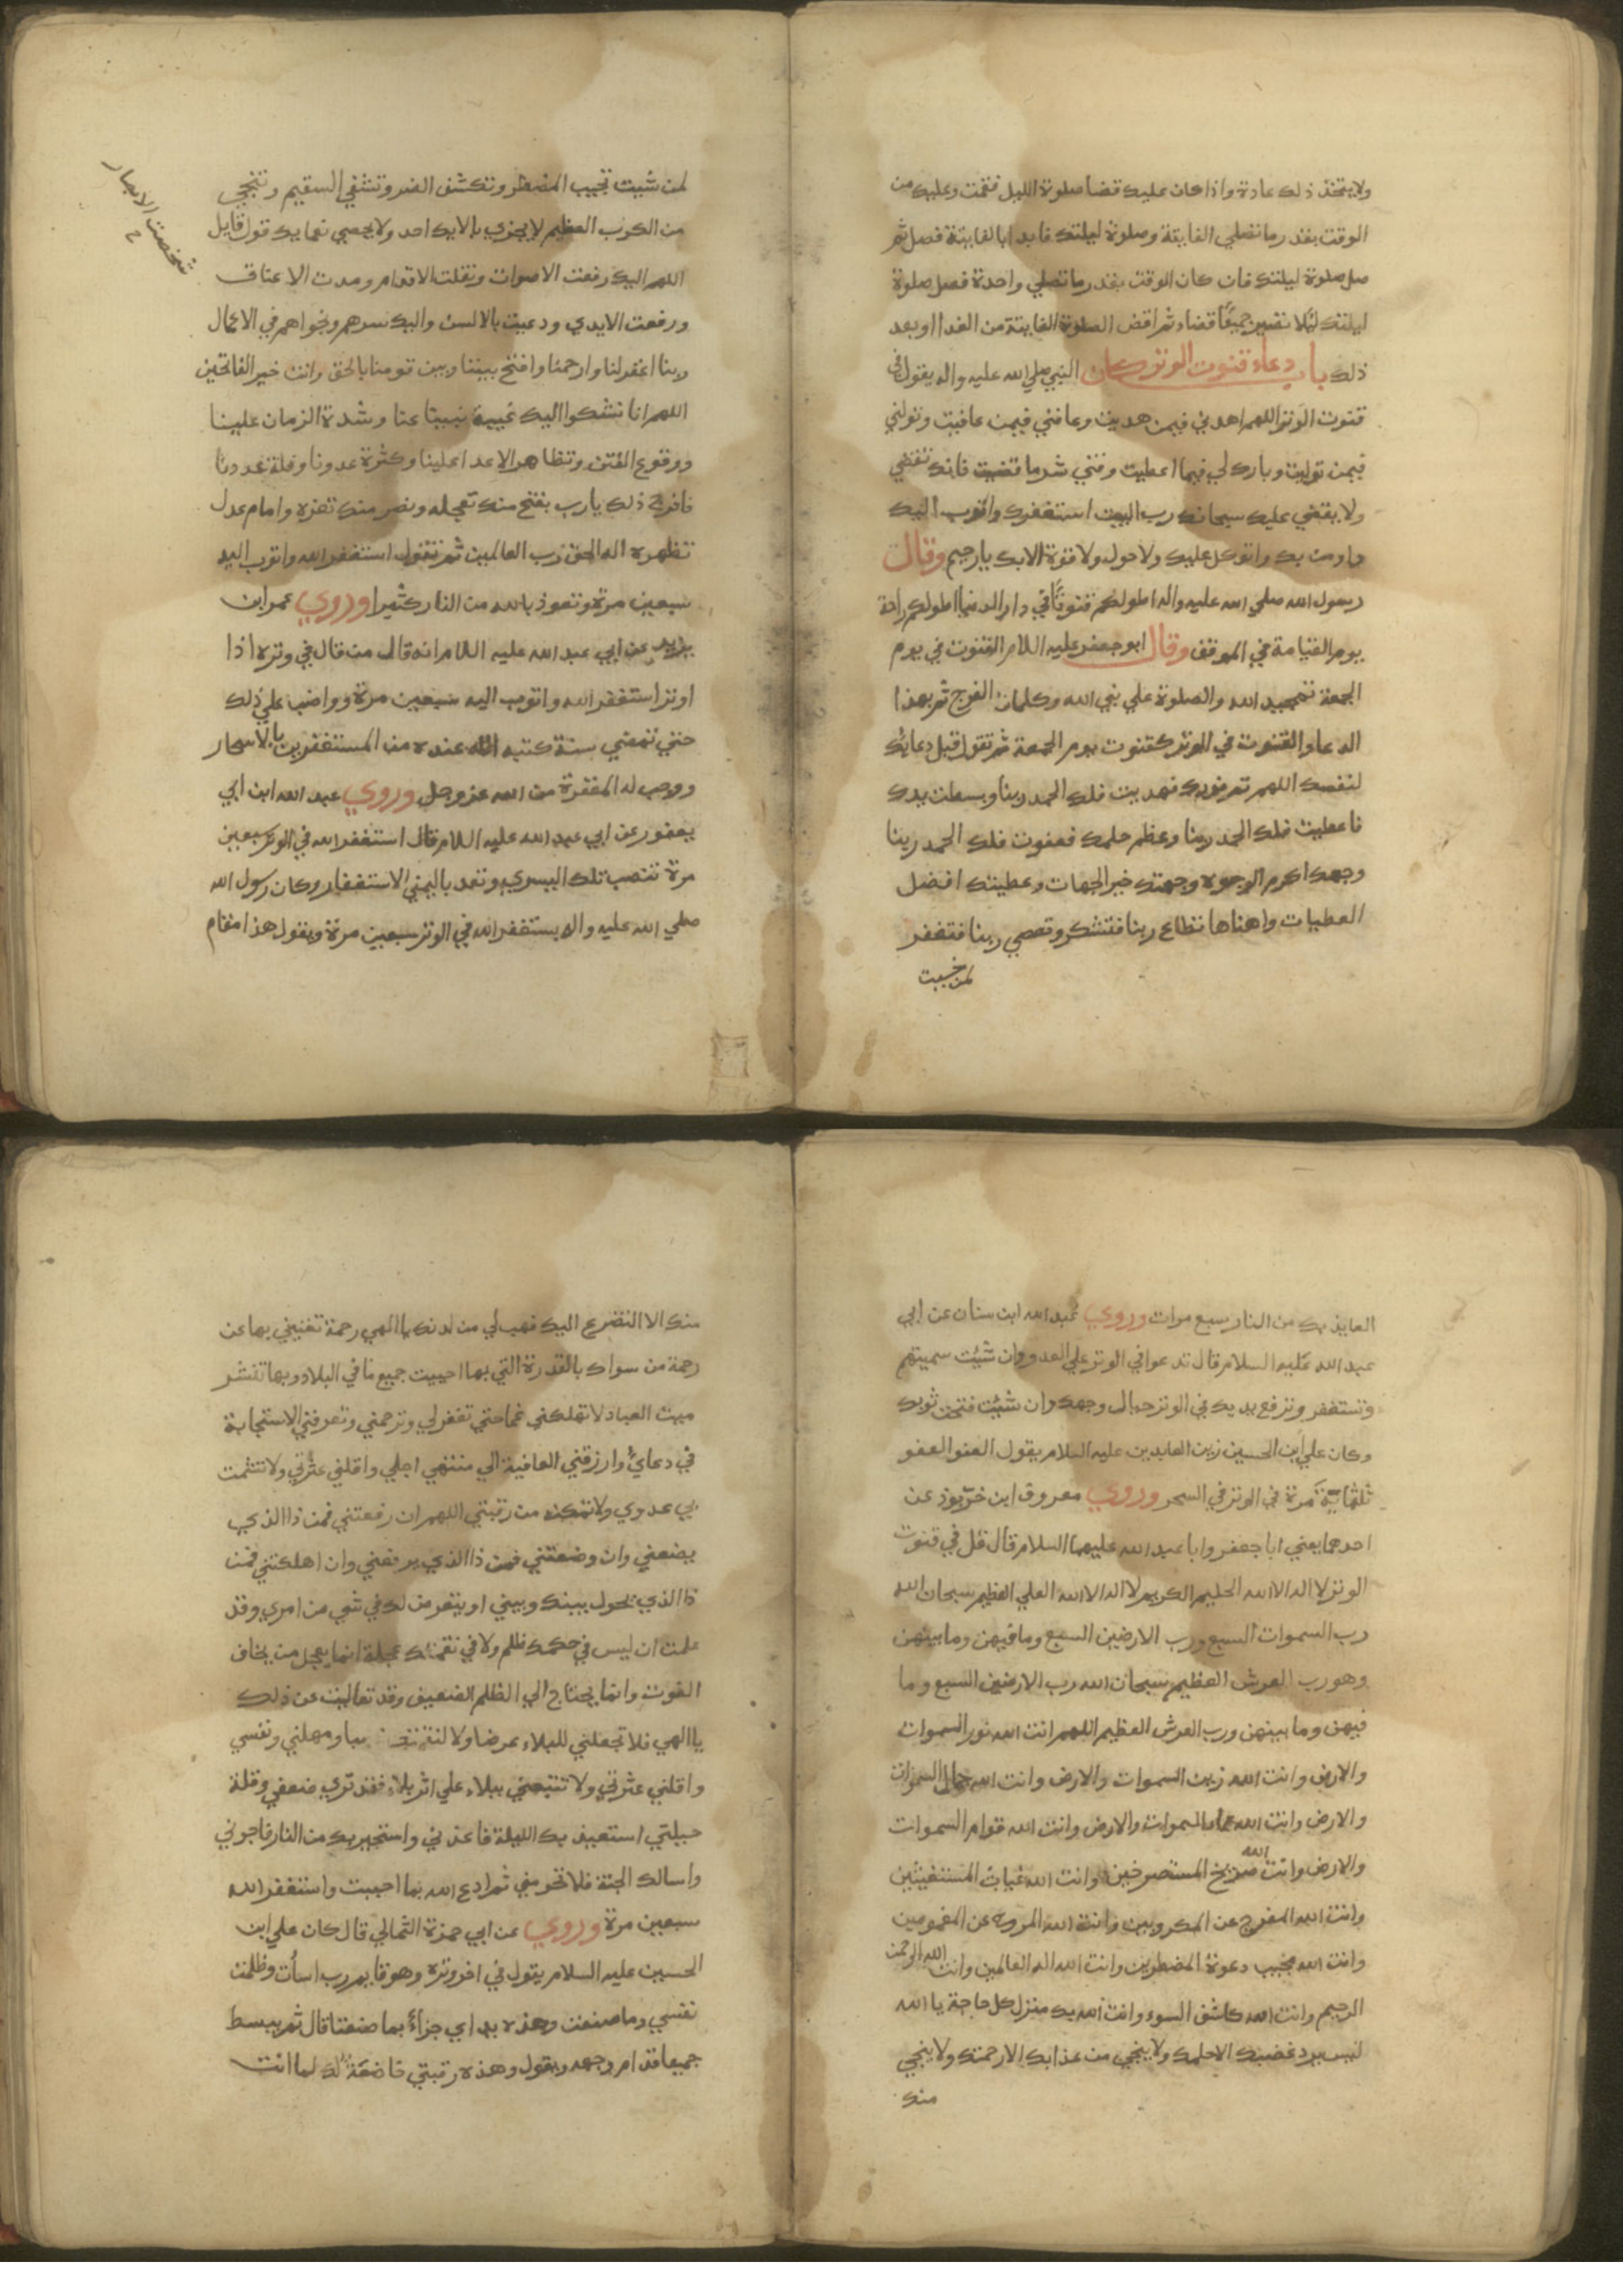 ولا يتخذ ذلك عادة واذا كان عليك قضا صلوة الليل فقمت وعليك من
الوقت بقدر ما تصلي الفايتة وصلوة ليلتك فابدا بالفايتة فصل ثم
صل صلوة ليلتك فان كان الوقت بقدر ما تصلي واحدة فصل صلوة
ليلتك لئلا تصيرن جميعًا قضاء ثم اقض الصلوة الفايتة من الغد او بعد
ذلك باب دعاء قنوت الوتر كان النبي صلي الله عليه واله يقول في
قنوت الوتر اللهم اهدني فيمن هديت وعافني فيمن عافيت وتولني
فيمن توليت وبارك لي فيما اعطيت وقني شر ما قضيت فانك تقضي
ولا يقضي عليك سبحانك رب البيت استغفرك واتوب اليك
واومن بك واتوكل عليك ولا حول ولا قوة الا بك يا رحيم وقال
رسول الله صلي الله عليه واله اطولكم قنوتًا في دار الدنيا اطولكم راحة
يوم القيامة في الموقف وقال ابو جعفر عليه اللام القنوت في يوم
الجمعة تمجيد الله والصلوة علي نبي الله وكلمات الفرج ثم بهذا
الدعا والقنوت في الوتر كقنوت يوم الجمعة ثم تقول قبل دعايك
لنفسك اللهم تم نورك فهديت فلك الحمد ربنا وبسطت يدك
فاعطيت فلك الحمد ربنا وعظم حلمك فعفوت فلك الحمد ربنا
وجهك اكرم الوجوه وجهتك خير الجهات وعطيتك افضل
العطيات واهناها تطاع ربنا فتشكر وتعصي ربنا فتغفر
لمن شيت
لمن شيت تجيب المضطر وتكشف الضر وتشفي السقيم وتنجي
من الكرب العظيم لا يجزي بالايك احد ولا يحصي نعمايك قول قايل
اللهم اليك رفعت الاصوات ونقلت الاقدام ومدت الاعناق
شخصت الابصار
ورفعت الايدي ودعيت بالالسن واليك سرهم ونجواهم في الاعمال
ربنا اغفر لنا وارحمنا وافتح بيننا وبين قومنا بالحق وانت خير الفاتحين
اللهم انا نشكوا اليك غيبة نبينا عنا وشدة الزمان علينا
ووقوع الفتن وتظاهر الاعدا علينا وكثرة عدونا وقلة عددنا
فافرج ذلك يا رب بفتح منك تعجله ونصر منك تعزه وامام عدل
تظهره اله الحق رب العالمين ثم تقول استغفر الله واتوب اليه
سبعين مرة وتعوذ بالله من النار كثيرا وروي عمر ابن
يزيد عن ابي عبد الله عليه اللام انه قال من قال في وتره اذا
اوتر استغفر الله واتوب اليه سبعين مرة وواضب علي ذلك
حتي تمضي سنة كتبه الله عنده من المستغفرين بالاسحار
ووجب له المغفرة من الله عز وجل وروي عبد الله ابن ابي
يعفور عن ابي عبد الله عليه اللام قال استغفر الله في الوتر سبعين
مرة تنصب تلك اليسري وتعد باليمني الاستغفار وكان رسول الله
صلي الله عليه واله يستغفر الله في الوتر سبعين مرة ويقول هذا مقام
العايذ بك من النار سبع مرات وروي عبد الله ابن سنان عن ابي
عبد الله عليه السلام قال تدعوا في الوتر علي العدو وان شئت سميتهم
وتستغفر وترفع يديك في الوتر حيال وجهك وان شئت فتحت ثوبك
وكان علي ابن الحسين زين العابدين عليه السلام يقول العفو العفو
ثلثماية مرة في الوتر في السحر وروي معروف ابن خربوذ عن
احدهما يعني ابا جعفر وابا عبد الله عليهما السلام قال قل في قنوت
الوتر لا اله الا الله الحليم الكريم لا اله الا الله العلي العظيم سبحان الله
رب السموات السبع ورب الارضين السبع وما فيهن وما بينهن
وهو رب العرش العظيم سبحان الله رب الارضين السبع وما
فيهن وما بينهن ورب العرش العظيم اللهم انت الله نور السموات
والارض وانت الله زين السموات والارض وانت الله جمال السموات
والارض وانت الله عماد السموات والارض وانت الله قوام السموات
والارض وانت الله صريخ المستصرخين وانت الله غياث المستغيثين
وانت الله المفرج عن المكروبين وانت الله المروح عن المغمومين
وانت الله مجيب دعوة المضطرين وانت الله اله العالمين وانت الله الرحمن
الرحيم وانت الله كاشف السوء وانت الله بك منزل كل حاجة يا الله
ليس يرد غضبك الا حلمك ولا ينجي من عذابك الا رحمتك ولا ينجي
منك
منك الا التضرع اليك فهب لي من لدنك يا الهي رحمة تغنيني بها عن
رحمة من سواك بالقدرة التي بها احييت جميع ما في البلاد وبها تنشر
ميت العباد لا تهلكني غما حتي تغفر لي وترحمني وتعرفني الاستجابة
في دعائي وارزقني العافية الي منتهي اجلي واقلني عثرتي ولا تشمت
بي عدوي ولا تمكنه من رقبتي اللهم ان رفعتني فمن ذا الذي
يضعني وان وضعتني فمن ذا الذي يرفعني وان اهلكتني فمن
ذا الذي يحول بينك وبيني او يتعرض لك في شي من امري وقد
علمت ان ليس في حكمك ظلم ولا في نقمتك عجلة انما يعجل من يخاف
الفوت وانما يحتاج الي الظلم الضعيف وقد تعاليت عن ذلك
يا الهي فلا تجعلني للبلاء عرضا ولا لنقمتك نصبا ومهلني ونفسي
واقلني عثرتي ولا تتبعني ببلاء علي اثر بلاء فقد تري ضعفي وقلة
حيلتي استعيذ بك الليلة فاعذني واستجير بك من النار فاجرني
واسالك الجنة فلا تحرمني ثم ادع الله بما احببت واستغفر الله
سبعين مرة وروي عن ابي حمزة الثمالي قال كان علي ابن
الحسين عليه السلام يقول في اخر وتره وهو قايم رب اسأت وظلمت
نفسي وما صنعت وهذه يداي جزاءً بما صنعتا قال ثم يبسط
جميعا قدام وجهه ويقول وهذه رقبتي خاضعة لك لما اتت